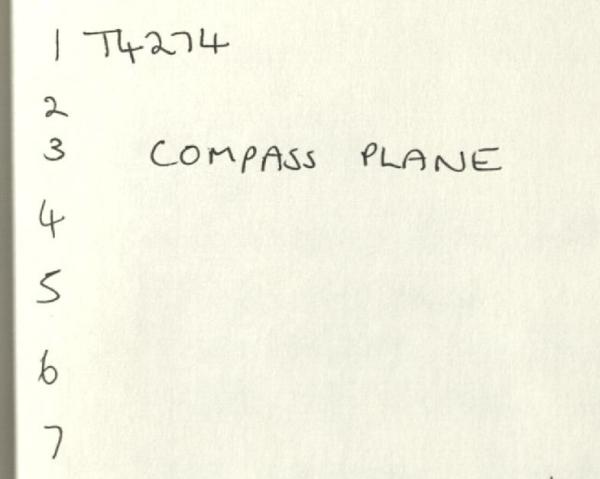 1 T4274
2
3 COMPASS PLANE
4
5
6
7